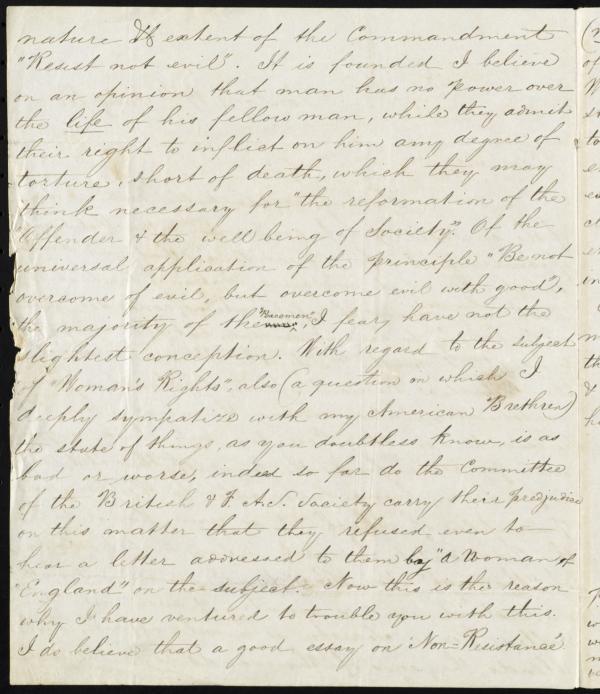 nature & extent of the Commandment
"Resist not evil". It is founded I believe
on an opinion that man has no power over
the life of his fellow man, while they admit
their right to inflict on him any degree of
torture, short of death, which they may
think necessary for "the reformation of the
Offender & the well being of Society". Of the
universal application of the principle "Be not
overcome of evil, but overcome evil with good",
the majority of the "Peacemen", I fear, have not the
slightest conception. With regard to the subject
of "Woman's Rights", also (a question on which I
deeply sympatize with my American Brethren)
the state of things, as you doubtless know, is as
bad or worse, indeed so far do the Committee
of the British & F. A. S. Society carry their predjudice
on this matter that they refused even to
hear a letter addressed to them by "a Woman of
England" on the subject. Now this is the reason
why I have ventured to trouble you with this.
I do believe that a good essay on "Non=Resistance"